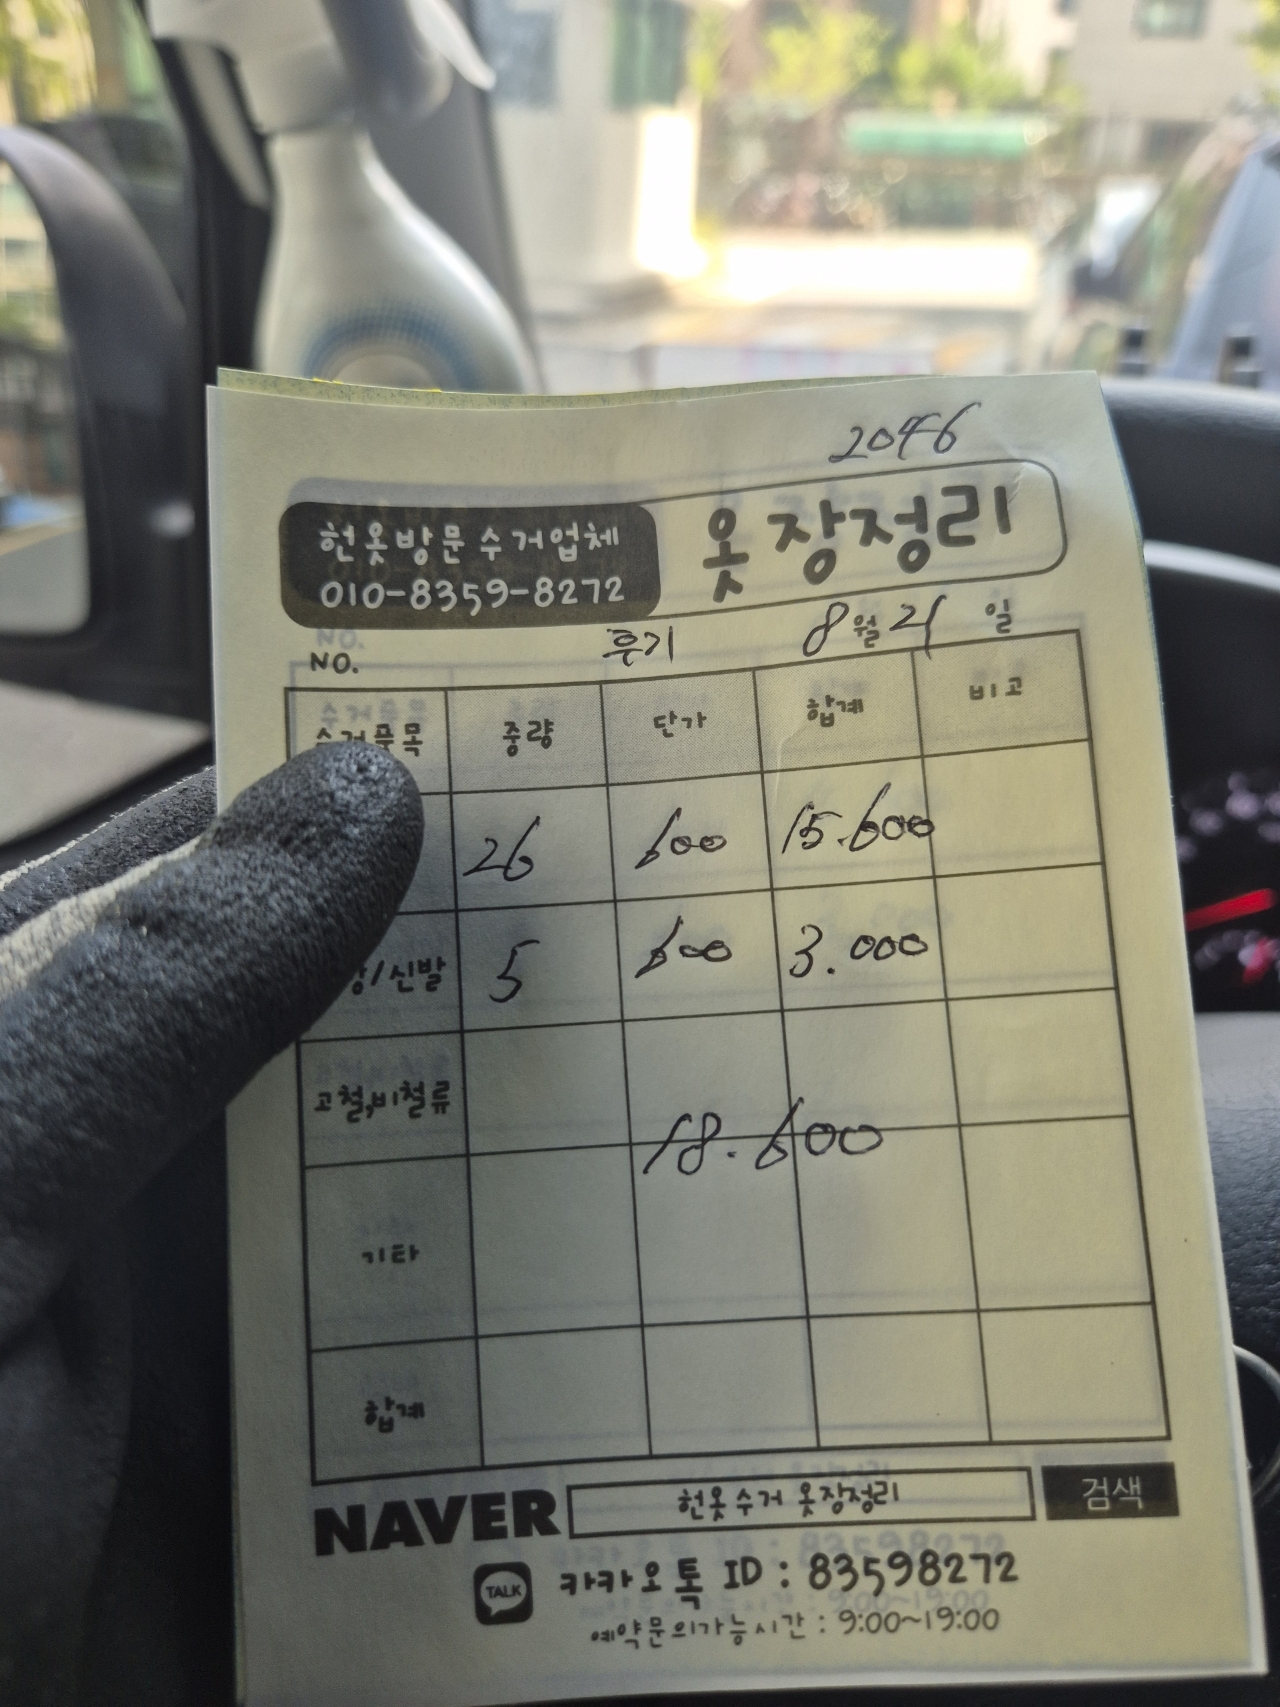 2046
헌옷방문수거업체 옷장정리
010-8359-8272
후기 8월 21일
NO.
수거품목 중량 단가 합계 비고
26 600 15.600
/신발 5 600 3.000
고철,비철류
18.600
기타
합계
NAVER 헌옷수거 옷장정리 검색
TALK 카카오톡 ID : 83598272
예약문의가능시간 : 9:00~19:00